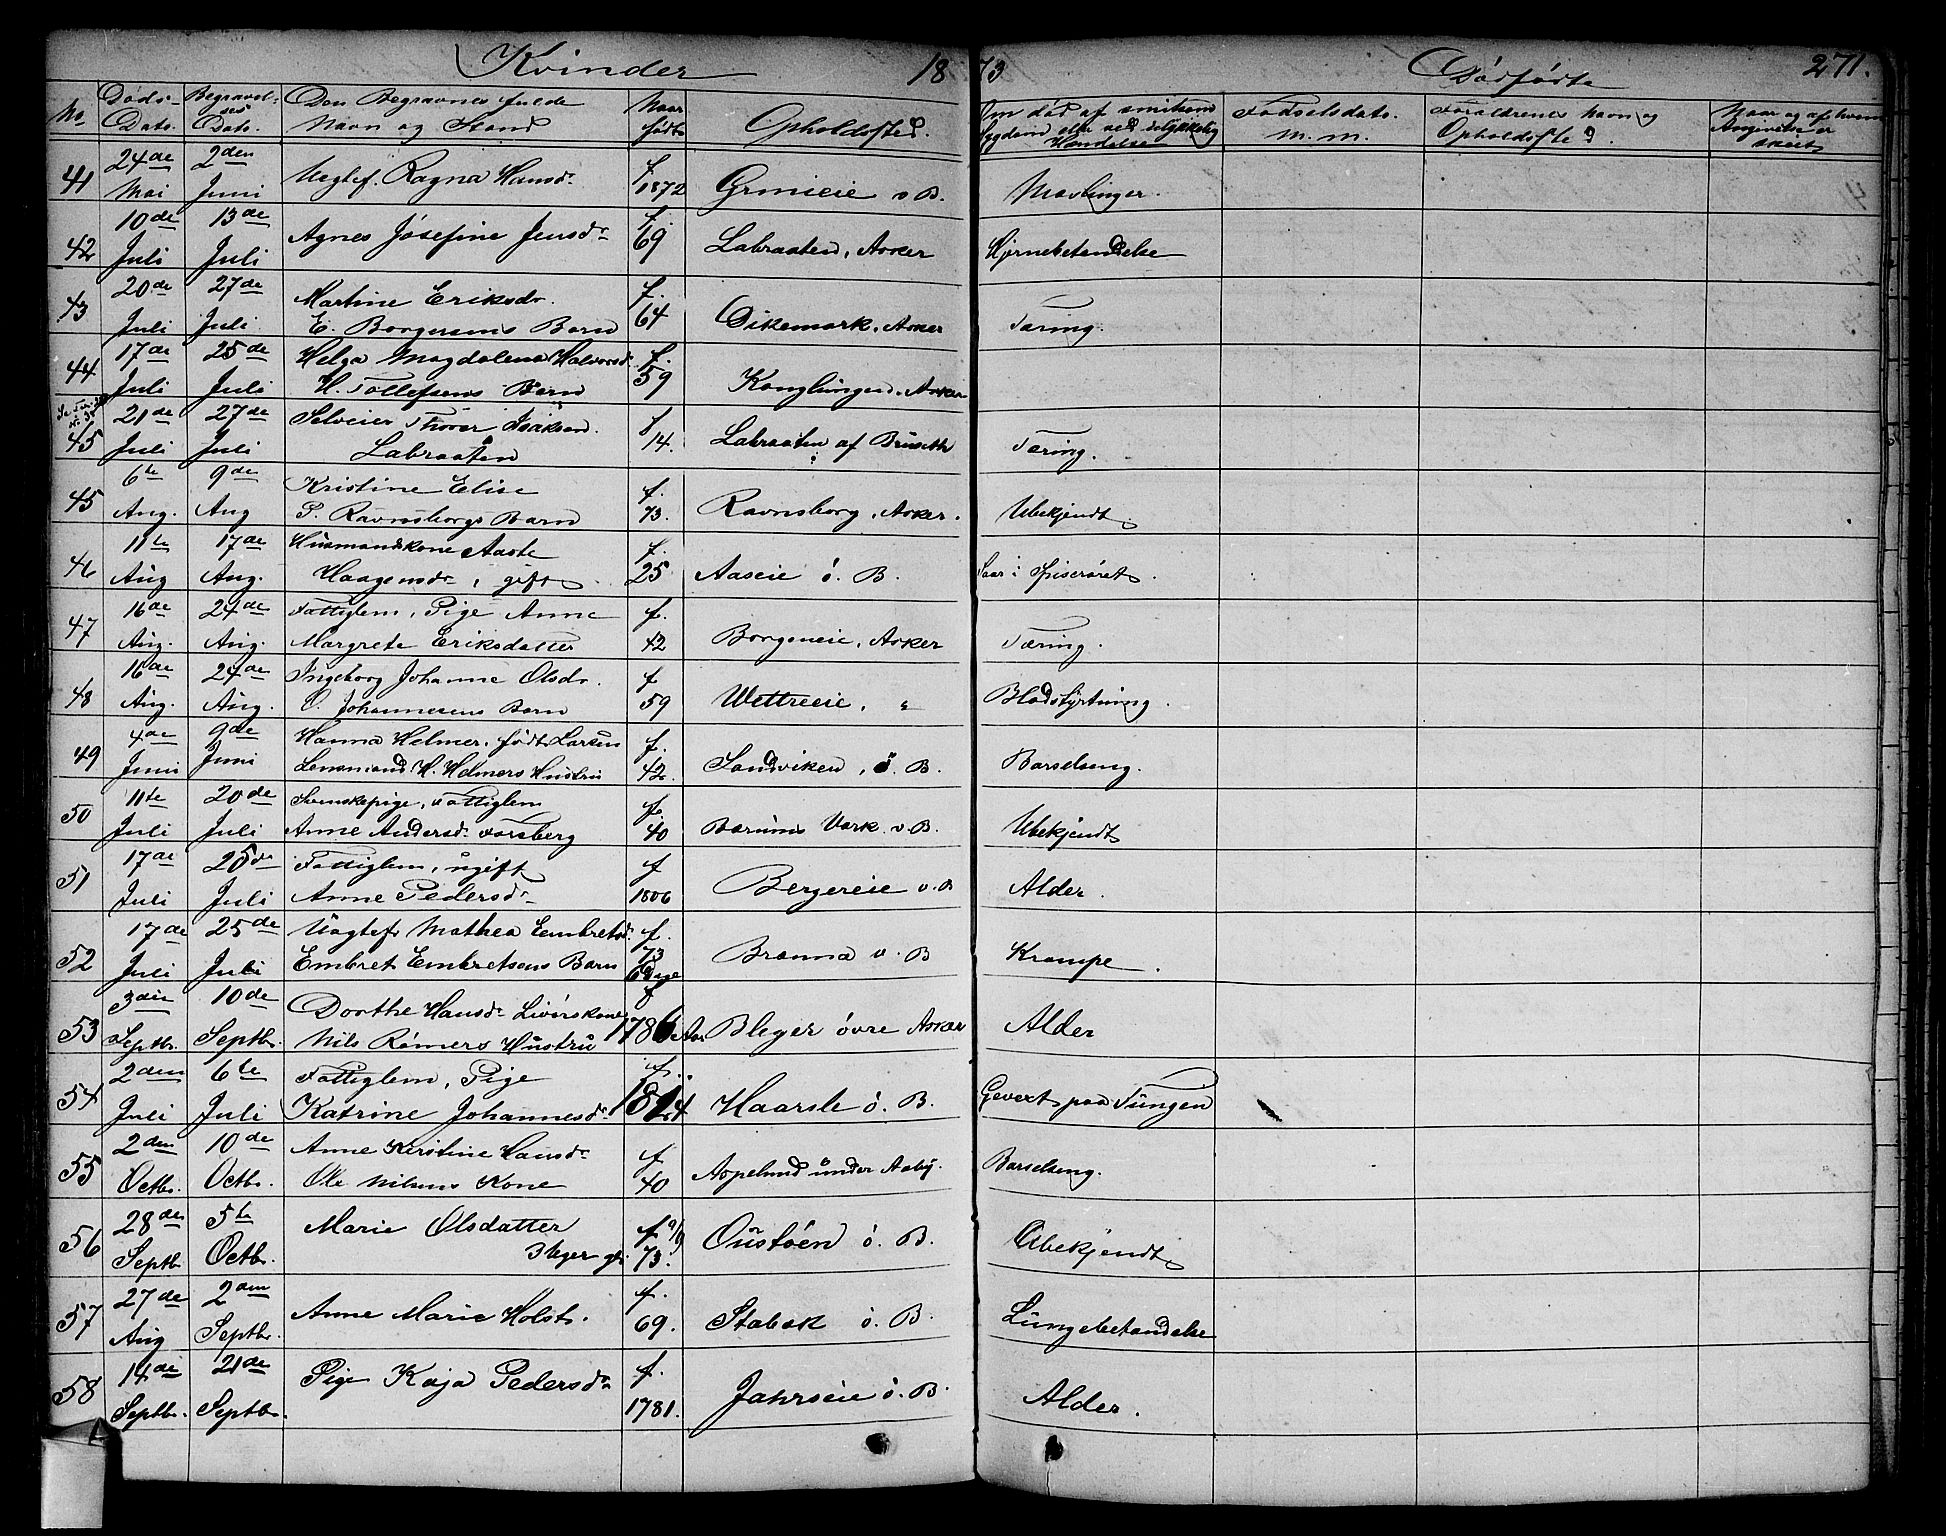 Kvinder 1873 Dødfødte 271.
No. Døds- Dato. Begravel- ses Dato. Den Begravnes fulde Navn og Stand Naar født Opholdssted. Om død af smitsom Sygdom eller ved ulykkelig Hændelse Fødselsdato. m. m. Forældrenes Navn og Opholdssted. Naar og af hvem Angivelse er skeet
41 24de Mai 2den Juni Uegtef. Ragna Hansdr f. 1872 Grinieie v B. Mavlinger.
42 10de Juli 13de Juli Agnes Josefine Jensdr f. 69 Labraaten, Asker Hjernebetendelse
43 20de Juli 27de Juli Martine Eriksdr.
E. Borgersens Barn f. 64 Dikemark, Asker Tæring.
44 17de Juli 25de Juli Helga Magdalena Halvorsd.
H. Tollefsens Barn f. 59 Konglungen, Asker
45 21de Juli 27de Juli Thorer Isaksen.
Labraaten f 14. Labraaten af Bruseth Tæring.
45 6te Aug. 9de Aug Kristine Elise
P. Ravnsborgs Barn f. 73. Ravnsborg, Asker. Ubekjendt
46 11te Aug 17de Aug. Husmandskone Aaste
Haagensdr, gift f. 25 Aaseie ö. B. Saar i Spiserøret.
47 16de Aug. 24de Aug. Fattiglem, Pige Anne
Margrete Eriksdatter f. 42 Borgeneie, Asker Tæring.
48 16de Aug. 24de Aug. Ingeborg Johanne Olsdr.
O. Johannesens Barn f 59 Wettreeie, " Blodstyrtning.
49 4de Juni 9de Juni Hanna Helmer, født Larsen
Lensmand H. Helmers Hustru f. 42. Sandviken, ö. B. Barselseng.
50 11te Juli 20de Juli Svenskepige, Fattiglem
Anne Andersdr Forsberg f. 40 Bærums Værk v B. Ubekjendt
51 17de Juli 25de Juli Fattiglem, ugift
Anne Pedersdr f 1806 Bergereie v. B Alder.
52 17de Juli 25de Juli Uægtef. Mathea Eembretsd.
Embret Embretsens Barn f. 73 Dage Brænna v. B Krampe.
53 3die Septbr. 10de Septbr. Dorthe Hansdr Livørskone
Nils Rømers Hustru f 1786 Bleger øvre Asker Alder
54 2den Juli 6te Juli Fattiglem, Pige
Katrine Johannesdr f. 1814 Haarsle ö. B. Gevext paa Tungen
55 2den Octbr. 10de Octbr. Anne Kirstine Hansdr
Ole Nilsens Kone f 40 Aspelund under Aaby. Barselseng.
56 28de Septbr 5te Octbr. Marie Olsdatter
3 Uger gl. f 9/9 73. Oustøen ö. B. Ubekjendt
57 27de Aug 2den Septbr. Anne Marie Holst. f. 69. Stabæk ö. B. Lungebetændelse
58 14de Septbr. 21de Septbr. Pige Kaja Pedersdr f. 1781. Jahrseie ö. B. Alder.